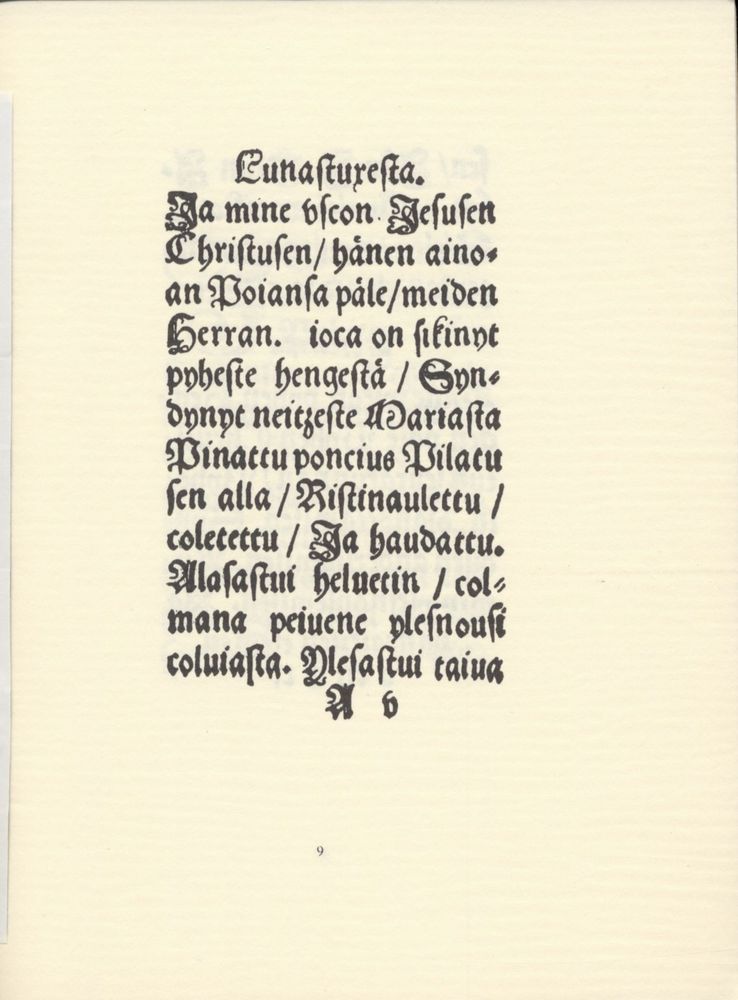 Lunaſtuxeſta.
Ja mine vſcon Jeſuſen
Chriſtuſen/ hänen aino⸗
an Poianſa päle/meiden
Herran. ioca on ſikinyt
pyheſte hengeſtä / Syn⸗
dynyt neitzeſte Mariaſta
Pinattu poncius Pilatu
ſen alla / Riſtinaulettu /
coletettu / Ja haudattu.
Alaſaſtui heluetin / col⸗
mana peiuene yleſnouſi
coluiaſta. Yleſaſtui taiua
A v
9